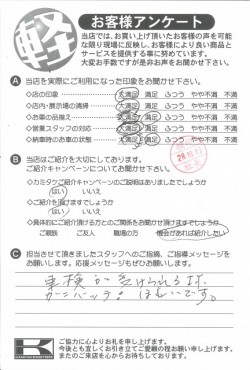 軽
お客様アンケート
当店では、お買い上げ頂いたお客様の声を可能
な限り現場に反映し、お客様により良い商品と
サービスを提供する事に努めています。
大変お手数ですが是非お声をお聞かせ下さい。
A 当店を実際にご利用になった印象をお聞かせ下さい。
◇店の印象 大満足 満足 ふつう やや不満 不満
◇店内・展示場の清掃 大満足 満足 ふつう やや不満 不満
◇お車の品揃え 大満足 満足 ふつう やや不満 不満
◇営業スタッフの対応 大満足 満足 ふつう やや不満 不満
◇納車時のお車の状態 大満足 満足 ふつう やや不満 不満
B 当店はご紹介を大切にしております。
ご紹介キャンペーンについてお聞かせ下さい。
◇カミタケご紹介キャンペーンのご説明はありましたでしょうか
はい いいえ
◇ご紹介を頂けますでしょうか
はい いいえ
◇具体的にご紹介頂ける方とのご関係をお聞かせ頂けますでしょうか
ご親族 ご友人 職場の方 機会があれば紹介したい
C 担当させて頂きましたスタッフへのご指摘、ご指導メッセージを
お願いします。応援メッセージもぜひお願いします。
車検が受けられる様
ガンバッテ ほしいです。
K
ご協力に心よりお礼を申し上げます。
今後とも宜しくお引き立てご愛顧の程お願い申し上げます。
またのご来店を心からお待ちしております。